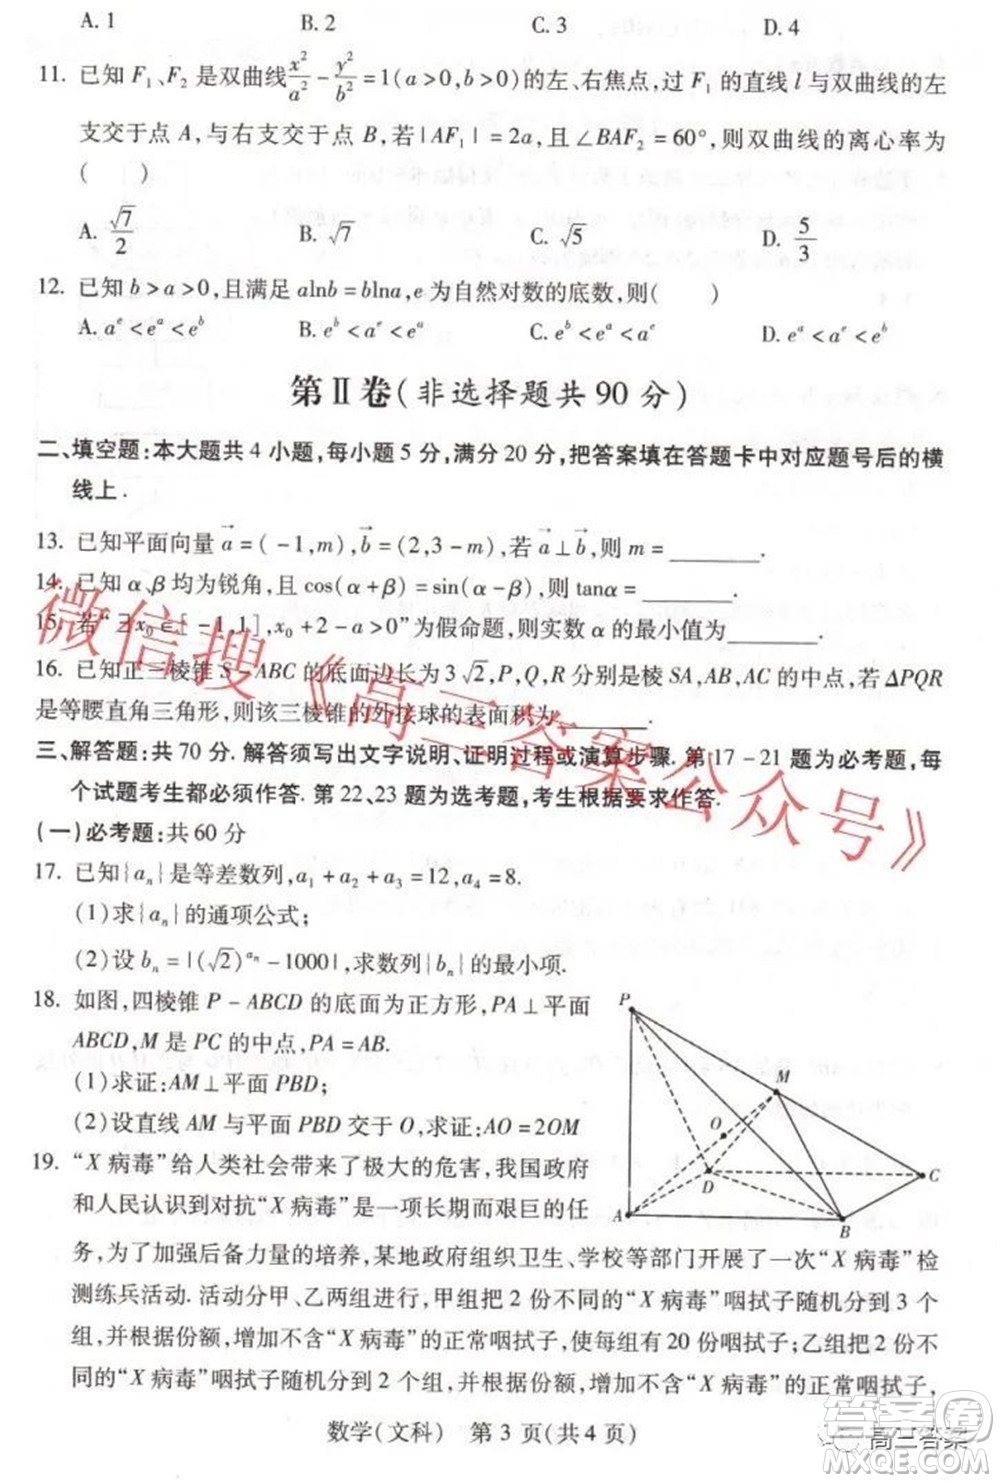 A. 1 B. 2 C. 3 D. 4
11. 已知 F₁、F₂ 是双曲线 x²/a² - y²/b² = 1(a>0,b>0)的左、右焦点,过 F₁ 的直线 l 与双曲线的左
支交于点 A,与右支交于点 B,若|AF₁|=2a,且∠BAF₂=60°,则双曲线的离心率为
( )
A. √7/2 B. √7 C. √5 D. 5/3
12. 已知 b>a>0,且满足 alnb=blna,e 为自然对数的底数,则( )
A. aᵉ<eᵃ<eᵇ B. eᵇ<aᵉ<eᵃ C. eᵇ<eᵃ<aᵉ D. eᵃ<aᵉ<eᵇ
第Ⅱ卷(非选择题共90分)
二、填空题:本大题共 4 小题,每小题 5 分,满分 20 分,把答案填在答题卡中对应题号后的横
线上.
13. 已知平面向量 a→=(-1,m),b→=(2,3-m),若 a→⊥b→,则 m=______.
14. 已知 α、β 均为锐角,且 cos(α+β)=sin(α-β),则 tanα=______.
15. 若“∃x₀∈[-1,1],x₀+2-a>0”为假命题,则实数 α 的最小值为______.
16. 已知正三棱锥 S-ABC 的底面边长为 3√2,P,Q,R 分别是棱 SA,AB,AC 的中点,若 ΔPQR
是等腰直角三角形,则该三棱锥的外接球的表面积为______.
三、解答题:共 70 分. 解答须写出文字说明、证明过程或演算步骤. 第 17-21 题为必考题,每
个试题考生都必须作答. 第 22、23 题为选考题,考生根据要求作答.
(一)必考题:共 60 分
17. 已知{aₙ}是等差数列,a₁+a₂+a₃=12,a₄=8.
(1)求{aₙ}的通项公式;
(2)设 bₙ=|(√2)^aₙ-1000|,求数列{bₙ}的最小项.
18. 如图,四棱锥 P-ABCD 的底面为正方形,PA⊥平面
ABCD,M 是 PC 的中点,PA=AB.
(1)求证:AM⊥平面 PBD;
(2)设直线 AM 与平面 PBD 交于 O,求证:AO=2OM
P
M
O
D
C
A
B
19. “X 病毒”给人类社会带来了极大的危害,我国政府
和人民认识到对抗“X 病毒”是一项长期而艰巨的任
务,为了加强后备力量的培养,某地政府组织卫生、学校等部门开展了一次“X 病毒”检
测练兵活动. 活动分甲、乙两组进行,甲组把 2 份不同的“X 病毒”咽拭子随机分到 3 个
组,并根据份额,增加不含“X 病毒”的正常咽拭子,使每组有 20 份咽拭子;乙组把 2 份不
同的“X 病毒”咽拭子随机分到 2 个组,并根据份额,增加不含“X 病毒”的正常咽拭子,
数学(文科) 第 3 页(共 4 页)
微信搜《高三答案公众号》
高三答案
答案圈
MXQE.COM